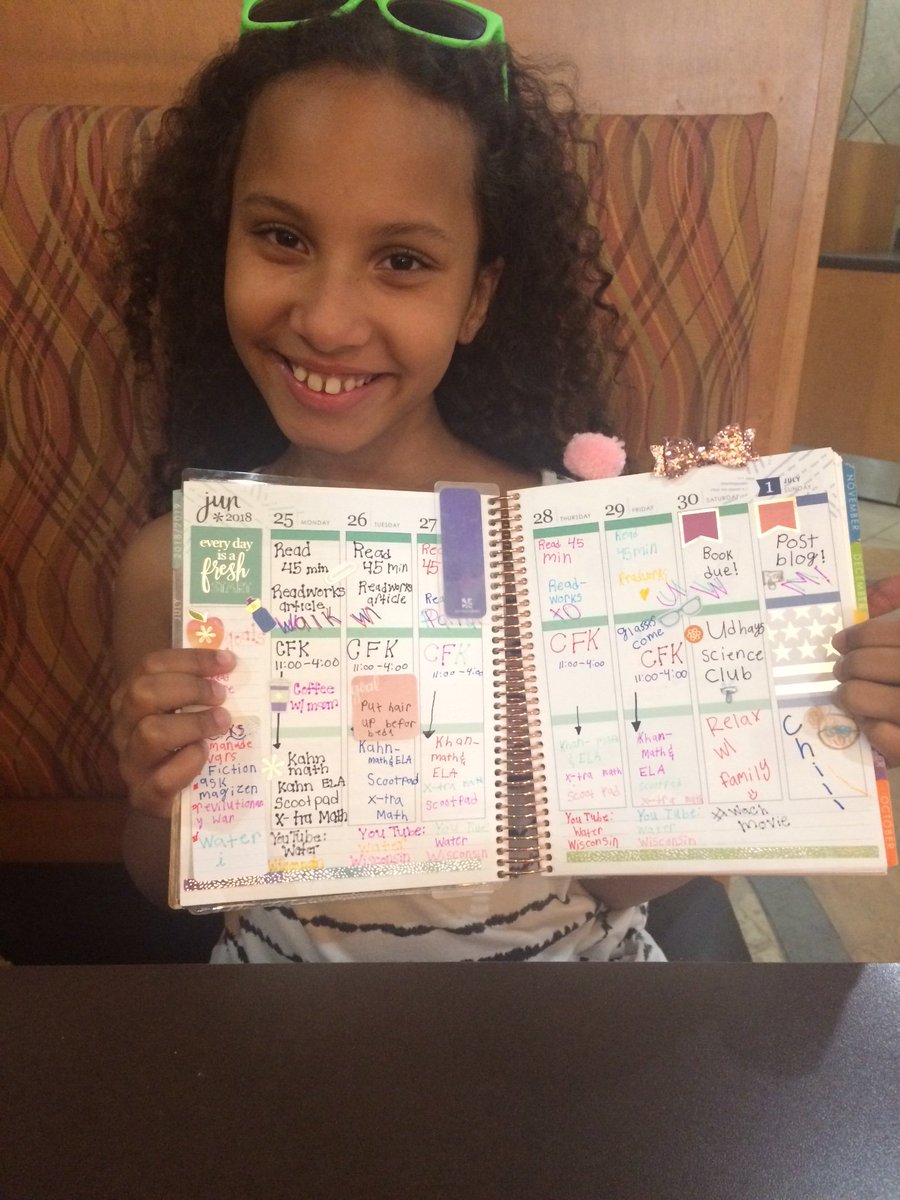 jun
*2018
every day
is a
fresh
25 MONDAY
Read
45 min
Readworks
article
Walk
CFK
11:00-4:00
Coffee
w/ mom
Kahn
math
Kahn ELA
Scootpad
x-tra Math
YouTube:
Water
Wisconsin
26 TUESDAY
Read
45 min
Readworks
article
CFK
11:00-4:00
goal
Put hair
up befor
bed
Kahn-
math & ELA
Scootpad
x-tra
Math
You Tube:
Water
Wisconsin
27
Read
45
CFK
11:00-4:00
Khan-
math &
ELA
x-tra math
Scootpad
You Tube:
Water
Wisconsin
goals
made
wars
Fiction
ask
magizen
revilutionary
War
Water
28 THURSDAY
Read 45
min
Read-
works
CFK
11:00-4:00
Khan-math
& ELA
x-tra math
Scoot Pad
You Tube:
Water
Wisconsin
29 FRIDAY
Read
45 min
Readworks
glasses
come
CFK
11:00-4:00
Khan-
math &
ELA
Scootpad
x-tra math
You Tube:
Water
Wisconsin
30 SATURDAY
Book
due!
Udhays
Science
Club
Relax
w/
family
Wach
movie
1 JULY
SUNDAY
Post
blog!
Chill
NOVEMBER
DECEMBER
OCTOBER